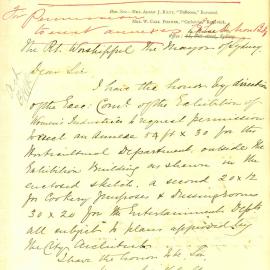 For Permission
to erect annexes
The Rt. Worshipful The Mayor of Sydney
Dear Sir
I have the honor, by direction
of the Exec. Com. of the Exhibition of
Women's Industries to request permission
to erect an annexe 64 ft x 30 for the
Horticultural Department, outside the
Exhibition Building as shown in the
enclosed sketch, a second 20 x 12
for Cookery purposes & Dressing rooms
30 x 20 for the Entertainment Dept
all subject to plans approved by
the City Architect.
I have the honor to be Sir